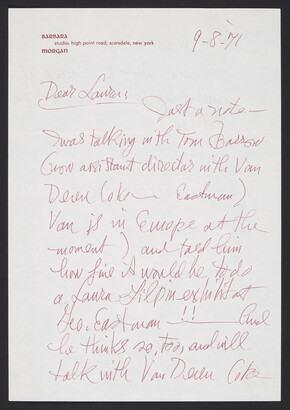 BARBARA
studio: high point road, scarsdale, new york
MORGAN
9-8-'71
Dear Laura
Just a note—
I was talking with Tom Barrow
(now assistant director with Van
Deren Coke — Eastman)
Van is in Europe at the
moment) and told him
how fine it would be to do
a Laura Gilpin exhibit at
Geo. Eastman — !! — And
he thinks so, too, and will
talk with Van Deren Coke